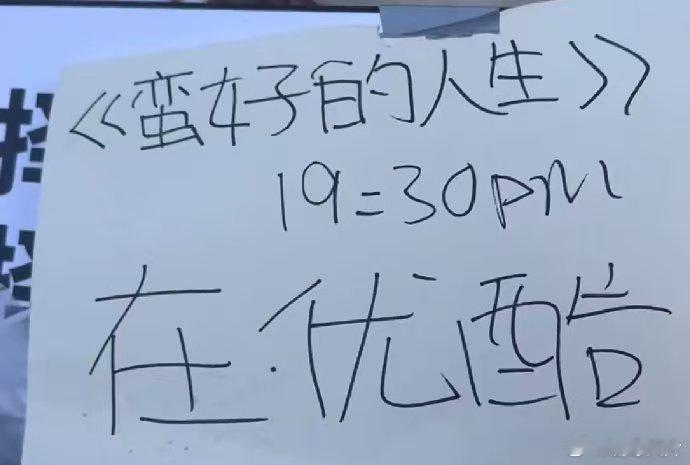 《蛮好的人生》
19:30pm
在优酷